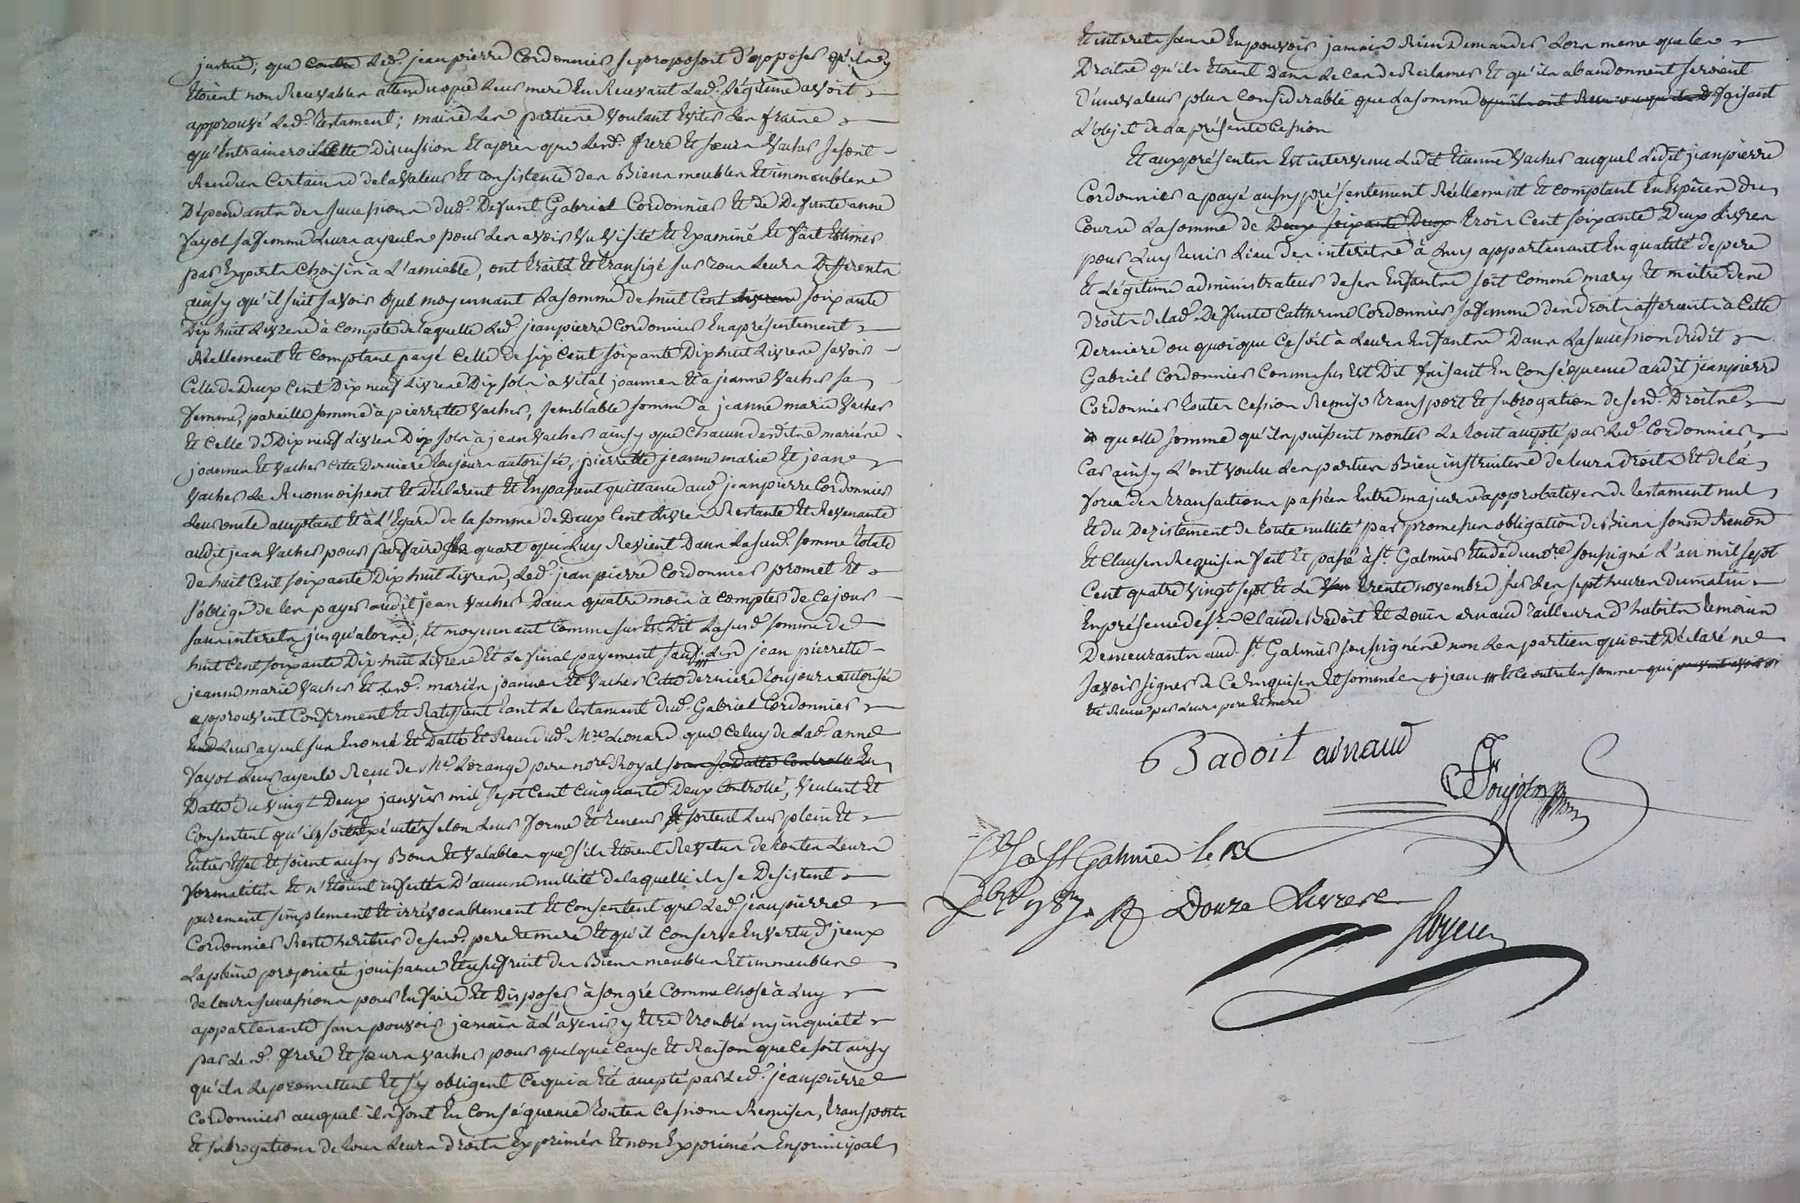 justice; que contre led. jean pierre Cordonnier se proposoit d'opposer qu'ils n'y
Etoient non Recevables attendu que Leur mere En Recevant Lad. Légitime avoit
approuvé Led. testament; mais les parties voulant Eviter les fraix
qu'Entraineroit Cette Discussion Et après que Lesd. frere Et sœurs Vacher se sont
Rendus Certains de la Valeur Et Consistence des Biens meubles Et immeubles
Dépendants des successions dud. Defunt Gabriel Cordonnier Et de Defunte anne
fayol sa femme Leurs ayeuls pour Les avoir Vu Visité Et Examiné Et fait Estimer
par Experts Choisis à L'amiable, ont traité Et transigé sur tous Leurs Differents
ainsy qu'il suit savoir que moyennant La somme de huit Cent livres soixante
Dix huit Livres à compte de laquelle Led. jean pierre Cordonnier En a présentement
Réellement Et Comptant payé Celle de six Cent soixante Dix huit Livres savoir
Celle de Deux Cent Dix neuf Livres Dix sols à Vital joannin Et à jeanne Vacher sa
femme, pareille somme à pierrette Vacher, semblable somme à jeanne marie Vacher
Et Celle de Dix neuf Livres Dix sols à jean Vacher ainsy que Chacun desdits mariés
joannin Et Vacher Cette Derniere toujours autorisée, pierrette jeanne marie Et jean
Vacher Le Reconnoissent Et Déclarent Et En passent quittance aud. jean pierre Cordonnier
ce acceptant Et à L'Egard de la somme de Deux Cent Livres Restante Et Revenante
audit jean Vacher pour parfaire le quart qui Luy Revient Dans La susd. somme totale
de huit Cent soixante Dix huit Livres, Led. jean pierre Cordonnier promet Et
s'oblige de les payer audit jean Vacher Dans quatre mois à Compter de Ce jour
sans interets jusqu'alors, Et moyennant Comme sus Est Dit La susd. somme de
huit Cent soixante Dix huit Livres Et Le final payement Lesd. jean pierrette
jeanne marie Vacher Et Lesd. mariés joannin Et Vacher Cette derniere toujours autorisée
approuvent Confirment Et Ratiffient tant Le testament dud. Gabriel Cordonnier
Leur ayeul sus Enoncé Et Datté Et Recu dud. Me. Leonard que Celuy de Lad. anne
fayol Leur ayeule Reçu de Me. Lerange pere nore. Royal sous sa Datte Controllé En
Datte du Vingt Deux janvier mil sept Cent Cinquante Deux Controllé, Veulent Et
Consentent qu'ils soit Exécutés selon Leur forme Et teneur Et sortent Leur plein Et
Entier Effet Et soient aussy Bons Et Valables que s'ils Etoient Revetus de toutes Leurs
formalités Et n'Etoient infectés D'aucune nullité de laquelle ils se Desistent
purement simplement Et irrévocablement Et Consentent que Led. jean pierre
Cordonnier Reste heritier de sesd. pere Et mere Et qu'il Conserve En Vertu d'iceux
La pleine propriété jouissance Et usufruit des Biens meubles Et immeubles
de Leurs successions pour En faire Et Disposer à son gré Comme Chose à Luy
appartenante sans pouvoir jamais à L'avenir y Etre troublé ny inquiété
par Lesd. frere Et sœurs Vacher pour quelque Cause Et Raison que Ce soit ainsy
qu'ils Le promettent Et s'y obligent Ce qui a Eté accepté par Led. jean pierre
Cordonnier auquel ils font En Conséquence toutes Cessions Remises, transports
Et subrogations de tous Leurs droits Exprimés Et non Exprimés En principal
Et interets sans En pouvoir jamais Rien Demander Lors meme que les
Droits qu'ils Etoient Dans Le Cas de Réclamer Et qu'ils abandonnent seroient
D'une valeur plus Considerable que La somme faisant
L'objet de La présente Cession
Et aux présentes Est intervenu Ledit Etienne Vacher auquel Ledit jean pierre
Cordonnier a payé aussy présentement Réellement Et Comptant En Espèces du
Cours La somme de Deux soixante Deux trois Cent soixante Deux Livres
pour Luy tenir Lieu des interets à Luy appartenant En qualité de pere
Et Légitime administrateur de ses Enfants soit Comme mary Et maitre des
droits de lad. Defunte Catherine Cordonnier sa femme des droits afferants à Cette
Derniere ou quoique Ce soit à Leurs Enfants Dans La succession dudit
Gabriel Cordonnier Comme sus Est Dit faisant En Conséquence audit jean pierre
Cordonnier toutes Cession Remise transport Et subrogation de sesd. Droits
à quelle somme qu'ils puissent monter Le tout accepté par Led. Cordonnier,
Car ainsy L'ont Voulu Les parties Bien instruites de leurs Droits Et de la
force des transactions passées Entre majeurs approbatives de testament nul
Et du Dezistement de toute nullité par promesses obligation de Biens soum. Renon.
Et Clauses Requises fait Et passé à St. Galmier Etude du nore. soussigné L'an mil sept
Cent quatre Vingt sept Et Le trente novembre sur Les sept heures du matin
En présence de srs. Claude Badoit Et Louis arnaud tailleurs d'habits temoins
Demeurants aud. St. Galmier soussignés non Les parties qui ont Déclaré ne
savoir signer de Ce Enquises Et sommées + jean Et Ce outre les sommes qui pouvoit avoir
été Recues par Leurs pere Et mere
Badoit arnaud
Poujol
Clé à St Galmier le 13
Xbre 1787. R Douze Livres